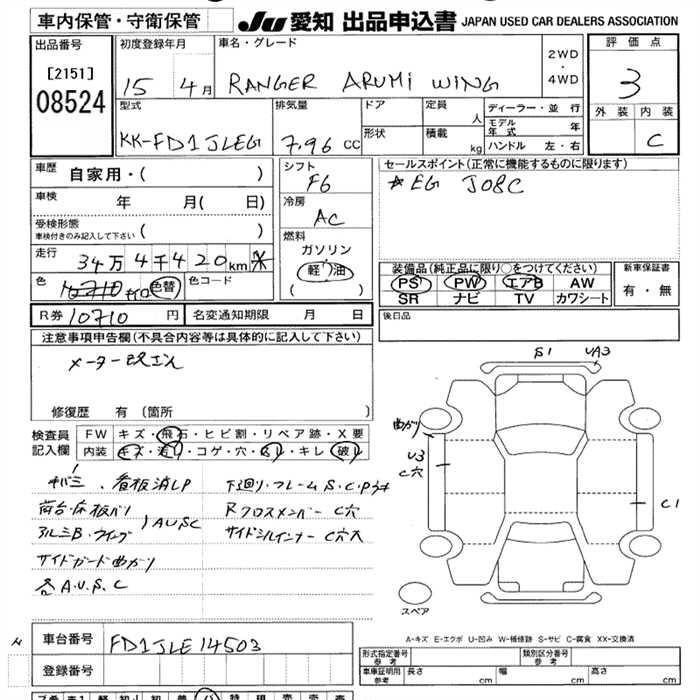 車内保管・守衛保管
JU 愛知 出品申込書 JAPAN USED CAR DEALERS ASSOCIATION
出品番号
[2151]
08524
初度登録年月
15 4月
車名・グレード
RANGER ARUMI WING
2WD
・
4WD
評価点
3
外装 内装
C
型式
KK-FD1JLEG
排気量
7.96 CC
ドア
形状
定員
人
積載
kg
ディーラー・並 行
モデル年式 年
ハンドル 左・右
車歴
自家用・( )
車検
年 月( 日)
受検形態
車検付きのみ記入して下さい ( )
走行
34万4千420km
色
色替
色コード
シフト
F6
冷房
AC
燃料
ガソリン
軽油
( )
セールスポイント(正常に機能するものに限ります)
☆EG J08C
装備品(純正品に限り○をつけてください)
PS PW エアB AW
SR ナビ TV カワシート
新車保証書
有・無
R券 10710 円
名変通知期限 月 日
後日品
注意事項申告欄(不具合内容等は具体的に記入して下さい)
メーター改ざん
修復歴 有 (箇所 )
検査員
記入欄
FW キズ・飛石・ヒビ割・リペア跡・X要
内装
コゲ・穴
キレ・破レ
看板消しP
下廻り・フレームS.C.P
荷台・床板
Rクロスメンバー C穴
アルミB・ウイング
AUSC
サイドシルインナー C穴
サイドガード曲がり
各A.U.S.C
S1 UA3
曲がり
U3
C穴
C1
スペア
A-キズ E-エクボ U-凹み W-補修跡 S-サビ C-腐食 XX-交換済
車台番号
FD1JLE14503
登録番号
形式指定番号
参考
類別区分番号
参考
車庫証明用
参考
長さ cm
幅 cm
高さ cm